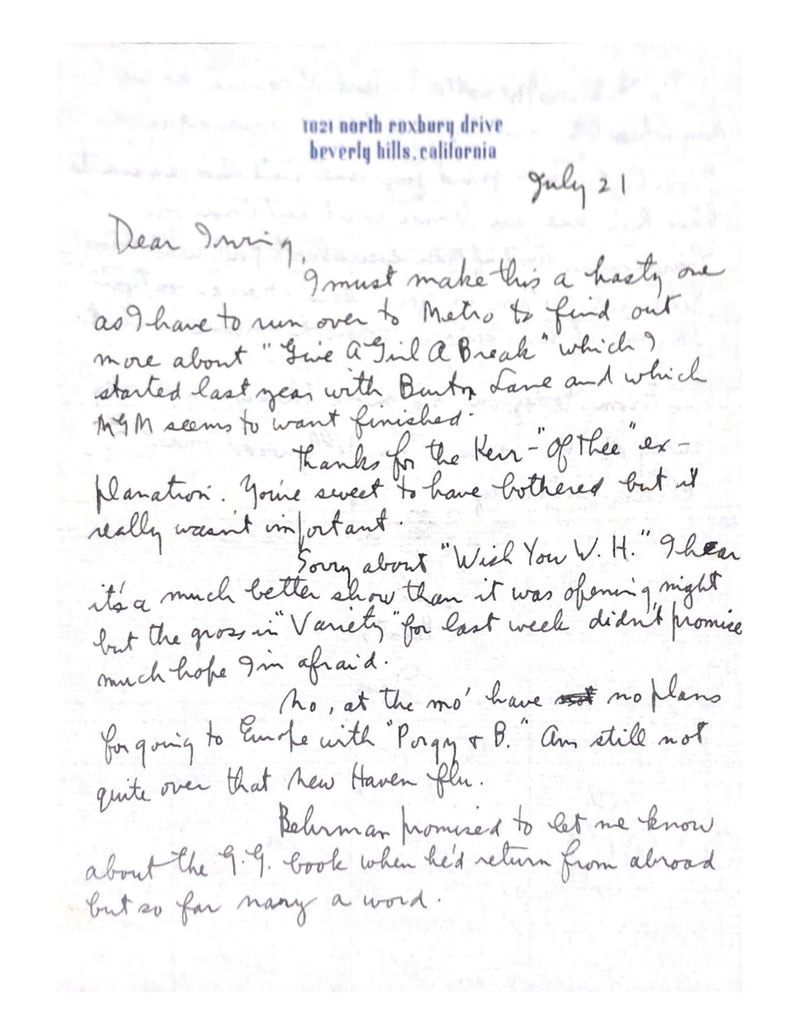 1021 north roxbury drive
beverly hills, california
July 21
Dear Irving,
I must make this a hasty one
as I have to run over to Metro to find out
more about "Give A Girl A Break" which I
started last year with Burton Lane and which
MGM seems to want finished.
Thanks for the Kerr-"Of Thee" ex-
planation. You're sweet to have bothered but it
really wasn't important.
Sorry about "Wish You W. H." I hear
it's a much better show than it was opening night
but the gross in "Variety" for last week didn't promise
much hope I'm afraid.
No, at the mo' have not no plans
for going to Europe with "Porgy & B." Am still not
quite over that New Haven flu.
Behrman promised to let me know
about the G.G. book when he'd return from abroad
but so far nary a word.